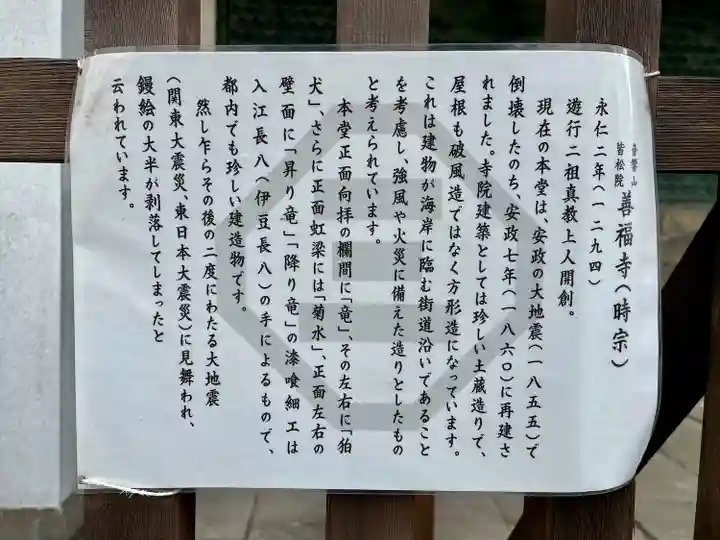 音響山
皆松院 善福寺(時宗)
永仁二年(一二九四)
遊行二祖真教上人開創。
現在の本堂は、安政の大地震(一八五五)で
倒壊したのち、安政七年(一八六〇)に再建さ
れました。寺院建築としては珍しい土蔵造りで、
屋根も破風造ではなく方形造になっています。
これは建物が海岸に臨む街道沿いであること
を考慮し、強風や火災に備えた造りとしたもの
と考えられています。
本堂正面向拝の欄間に「竜」、その左右に「狛
犬」、さらに正面虹梁には「菊水」、正面左右の
壁面に「昇り竜」「降り竜」の漆喰細工は
入江長八(伊豆長八)の手によるもので、
都内でも珍しい建造物です。
然し乍らその後の二度にわたる大地震
(関東大震災、東日本大震災)に見舞われ、
鏝絵の大半が剥落してしまったと
云われています。